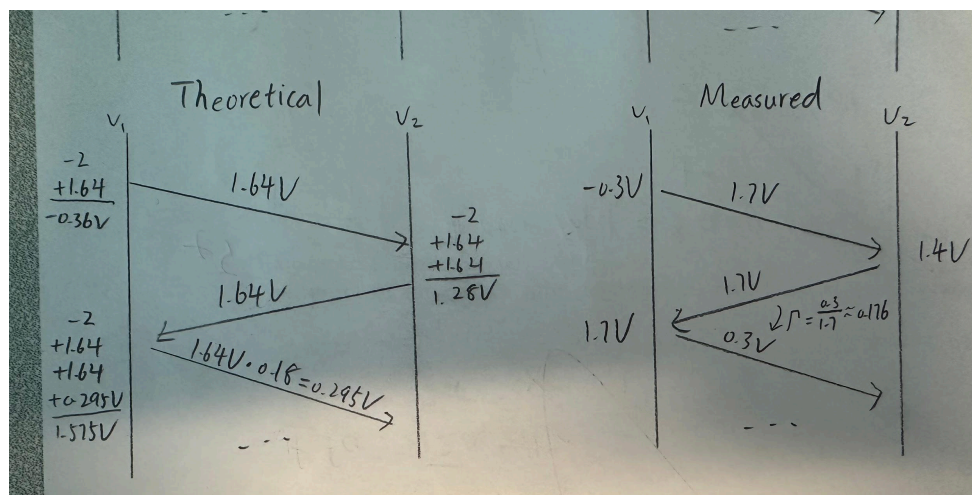 Theoretical
V₁
V₂
-2
+1.64
-0.36V
1.64V
-2
+1.64
+1.64
1.28V
1.64V
-2
+1.64
+1.64
+0.295V
1.575V
1.64V · 0.18 = 0.295V
Measured
V₁
V₂
-0.3V
1.7V
1.4V
1.7V
1.7V
Γ = 0.3/1.7 ≈ 0.176
0.3V